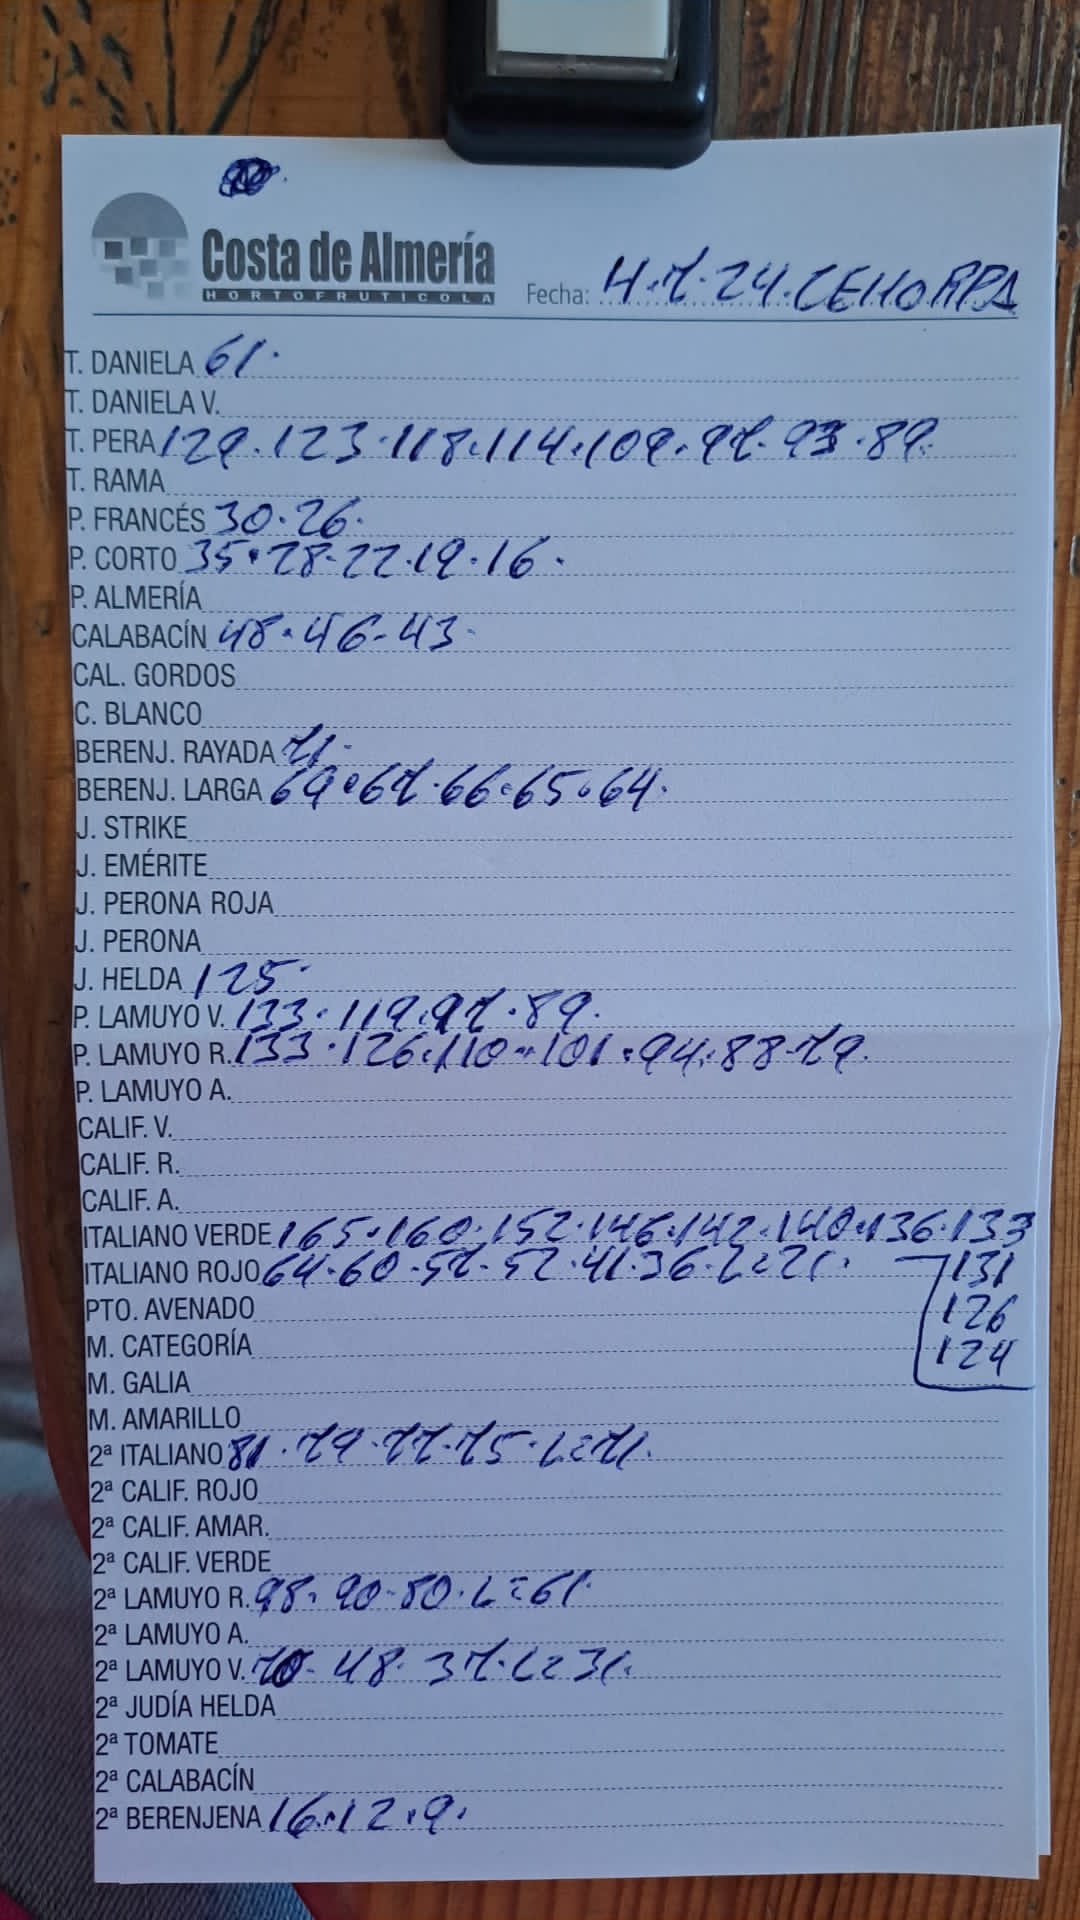 Costa de Almería
HORTOFRUTICOLA
Fecha: 4.7.24. CEHORPA
T. DANIELA 61.
T. DANIELA V.
T. PERA 129.123.118.114.109.97.93.89.
T. RAMA
P. FRANCÉS 30.26.
P. CORTO 35.28.22.19.16.
P. ALMERÍA
CALABACÍN 48.46.43.
CAL. GORDOS
C. BLANCO
BERENJ. RAYADA 71.
BERENJ. LARGA 69.67.66.65.64.
J. STRIKE
J. EMÉRITE
J. PERONA ROJA
J. PERONA
J. HELDA 125.
P. LAMUYO V. 133.119.97.89.
P. LAMUYO R. 133.126.110.101.94.88.79.
P. LAMUYO A.
CALIF. V.
CALIF. R.
CALIF. A.
ITALIANO VERDE 165.160.152.146.142.140.136.133
ITALIANO ROJO 64.60.57.52.41.36.L=21. 131
PTO. AVENADO 126
M. CATEGORÍA 124
M. GALIA
M. AMARILLO
2ª ITALIANO 81.79.77.75.L=71.
2ª CALIF. ROJO
2ª CALIF. AMAR.
2ª CALIF. VERDE
2ª LAMUYO R. 98.90.80.L=61.
2ª LAMUYO A.
2ª LAMUYO V. 70.48.37.L=31.
2ª JUDÍA HELDA
2ª TOMATE
2ª CALABACÍN
2ª BERENJENA 16.12.9.